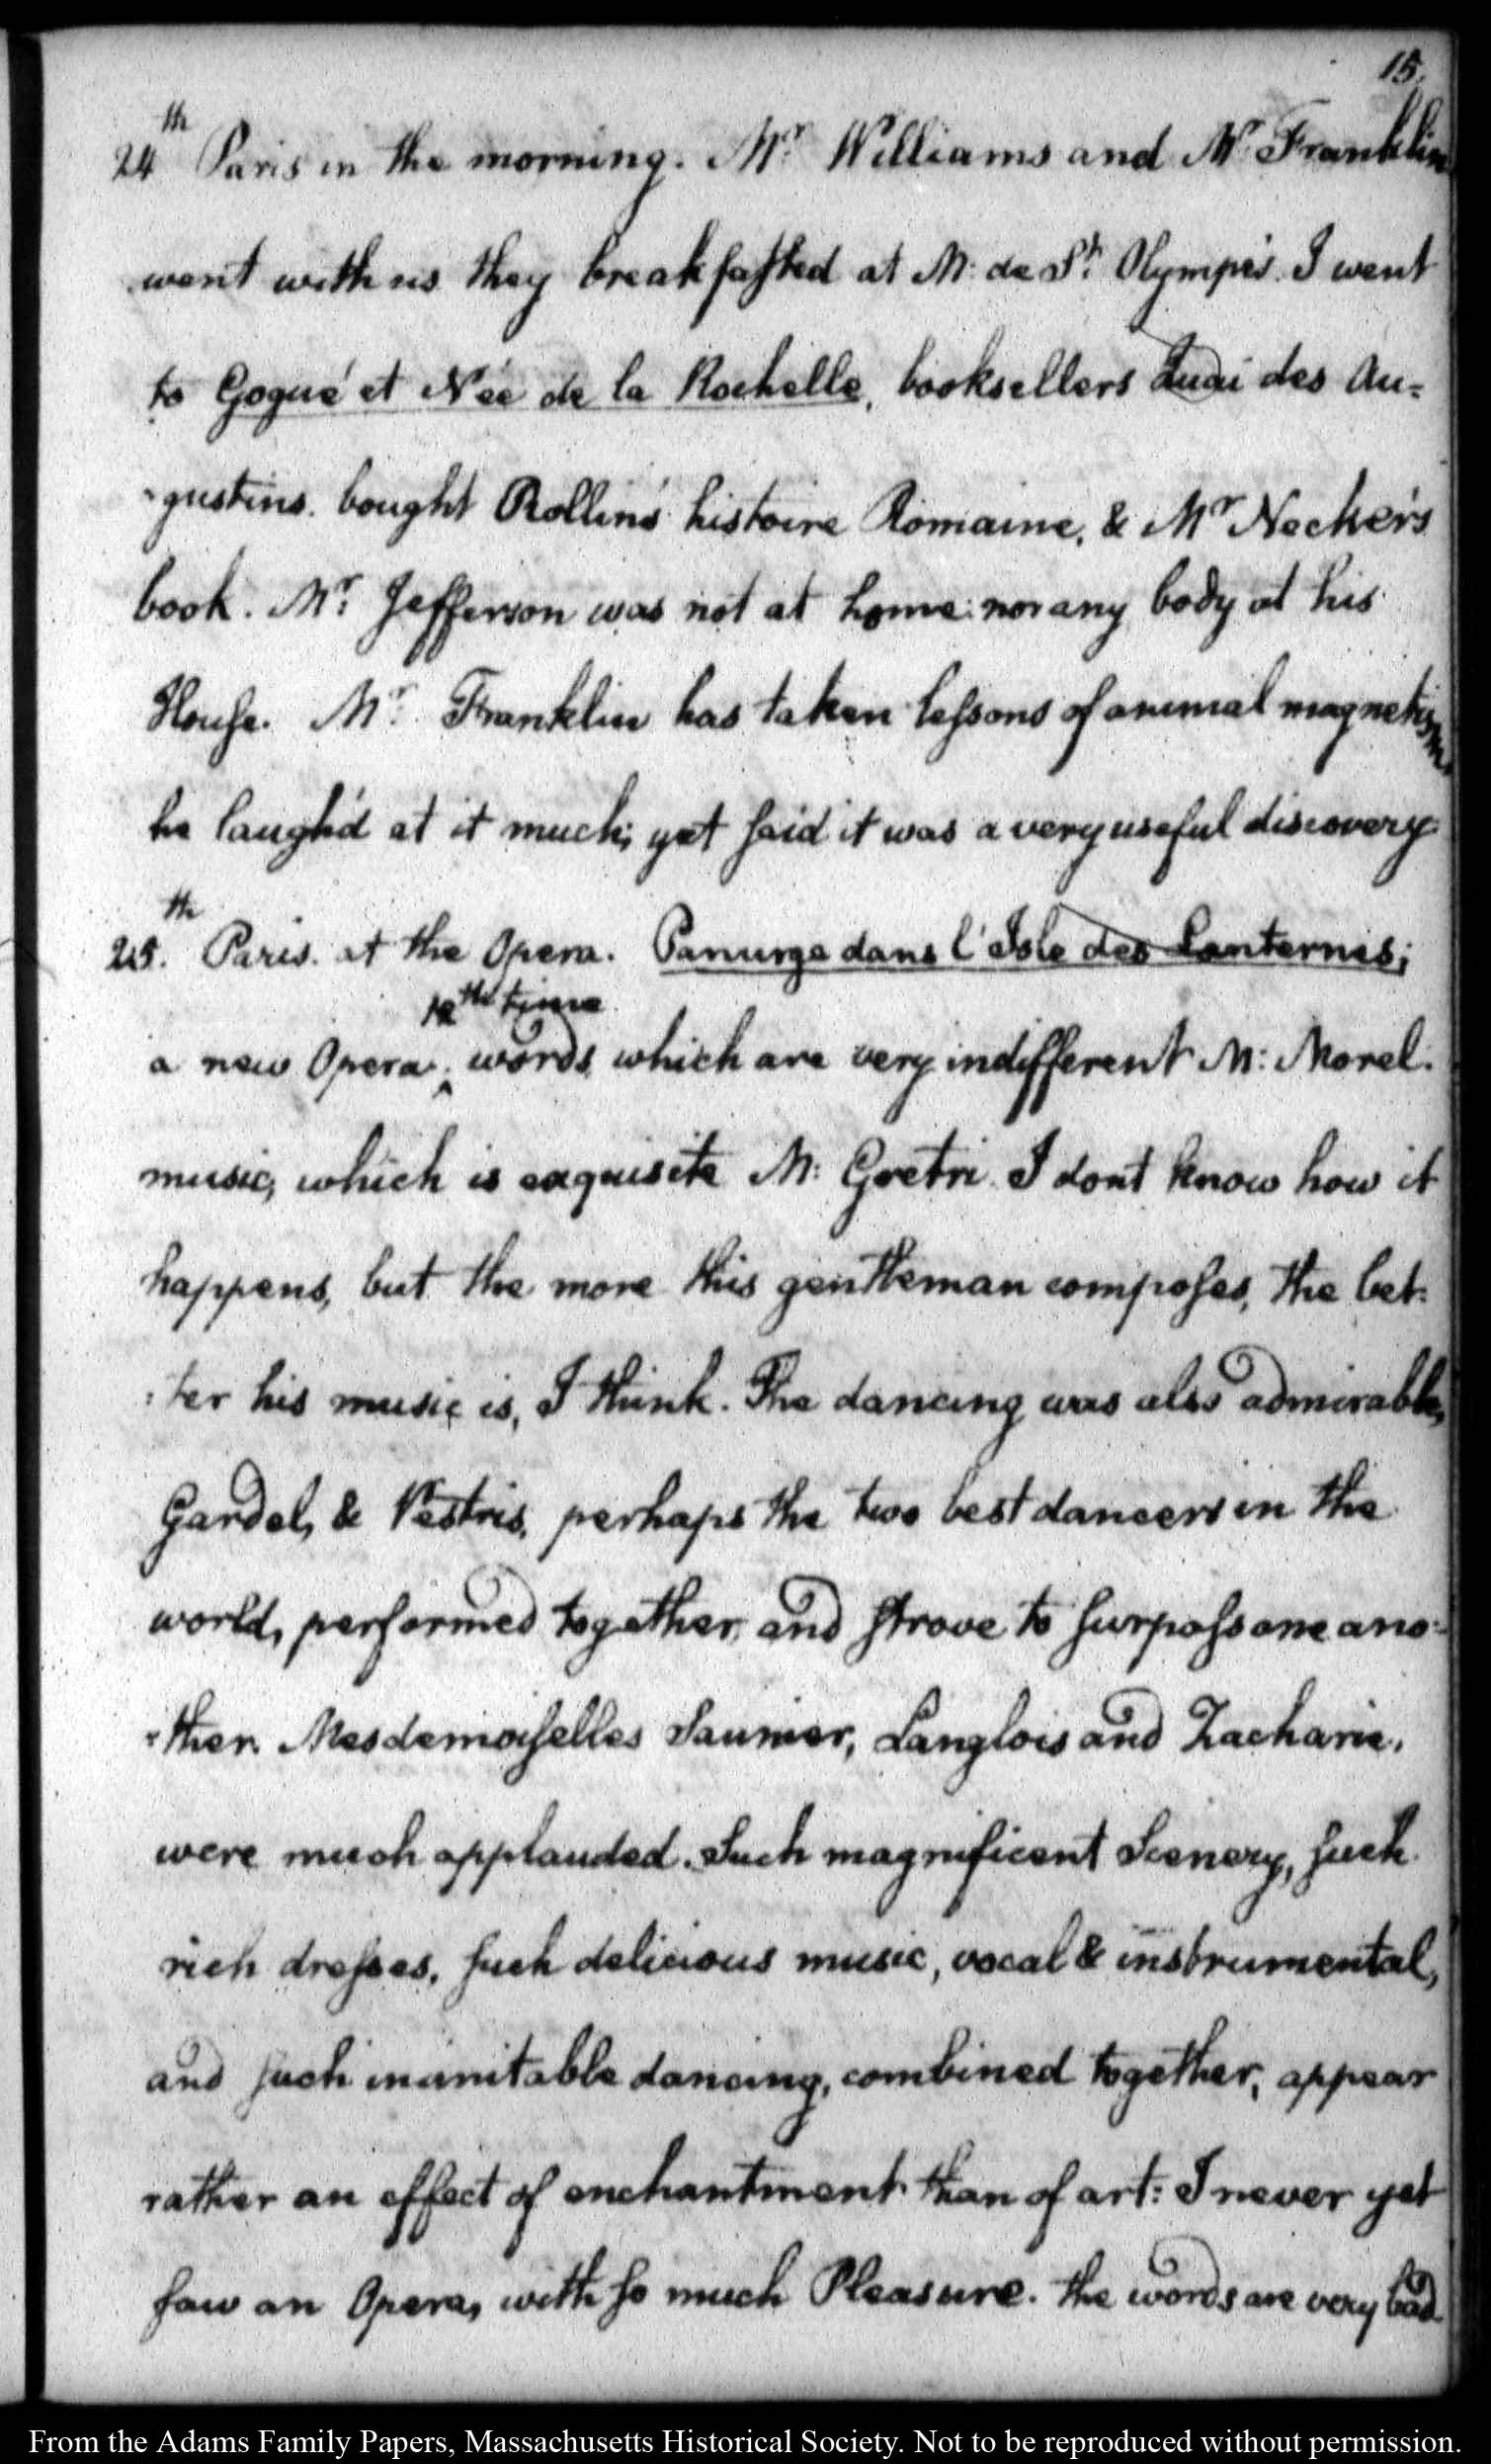 15.
24th Paris in the morning. Mr. Williams and Mr. Franklin
went with us they breakfasted at M: de St. Olympe's. I went
to Gogué et Née de la Rochelle, booksellers Quai des Au=
=gustins. bought Rollin's histoire Romaine, & Mr Necker's
book. Mr. Jefferson was not at home: nor any body at his
House. Mr. Franklin has taken lessons of animal magnetism
he laugh'd at it much; yet said it was a very useful discovery
25.th Paris. at the Opera. Panurge dans l'Isle des Lanternes;
12th time
a new Opera; words which are very indifferent M: Morel.
music, which is exquisite M: Gretri. I dont know how it
happens, but the more this gentleman composes, the bet:
:ter his music is, I think. The dancing was also admirable,
Gardel, & Vestris, perhaps the two best dancers in the
world, performed together, and strove to surpass one ano=
=ther. Mesdemoiselles Saunier, Langlois and Zacharie,
were much applauded. Such magnificent Scenery, such
rich dresses, such delicious music, vocal & instrumental,
and such inimitable dancing, combined together, appear
rather an effect of enchantment than of art: I never yet
saw an Opera, with so much Pleasure. the words are very bad
From the Adams Family Papers, Massachusetts Historical Society. Not to be reproduced without permission.